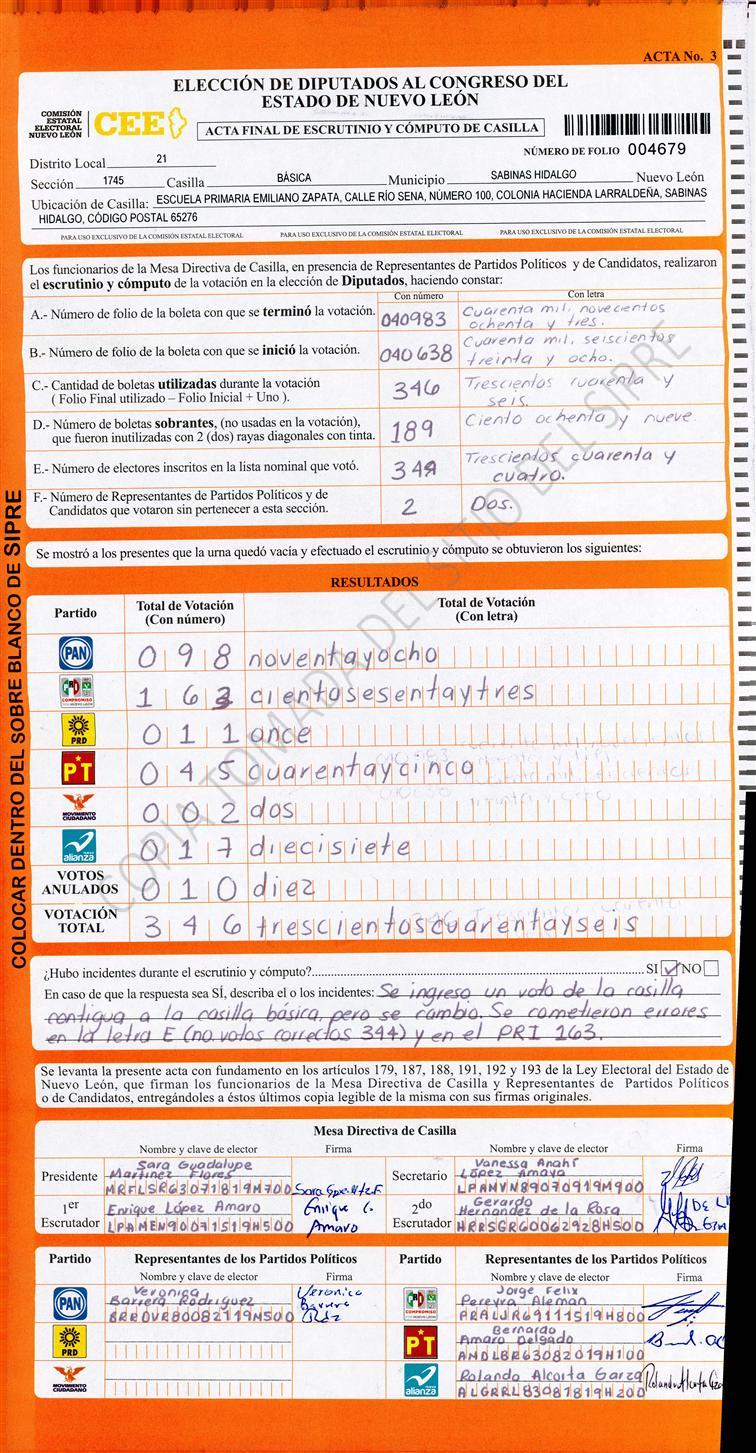 ACTA No. 3
ELECCIÓN DE DIPUTADOS AL CONGRESO DEL
ESTADO DE NUEVO LEÓN
COMISIÓN
ESTATAL
ELECTORAL
NUEVO LEÓN
CEE
ACTA FINAL DE ESCRUTINIO Y CÓMPUTO DE CASILLA
NÚMERO DE FOLIO 004679
Distrito Local 21
Sección 1745 Casilla BÁSICA Municipio SABINAS HIDALGO Nuevo León
Ubicación de Casilla: ESCUELA PRIMARIA EMILIANO ZAPATA, CALLE RÍO SENA, NÚMERO 100, COLONIA HACIENDA LARRALDEÑA, SABINAS
HIDALGO, CÓDIGO POSTAL 65276
PARA USO EXCLUSIVO DE LA COMISIÓN ESTATAL ELECTORAL PARA USO EXCLUSIVO DE LA COMISIÓN ESTATAL ELECTORAL PARA USO EXCLUSIVO DE LA COMISIÓN ESTATAL ELECTORAL
Los funcionarios de la Mesa Directiva de Casilla, en presencia de Representantes de Partidos Políticos y de Candidatos, realizaron
el escrutinio y cómputo de la votación en la elección de Diputados, haciendo constar:
Con número Con letra
A.- Número de folio de la boleta con que se terminó la votación. 040983 Cuarenta mil, novecientos
ochenta y tres.
B.- Número de folio de la boleta con que se inició la votación. 040638 Cuarenta mil, seiscientos
treinta y ocho.
C.- Cantidad de boletas utilizadas durante la votación
( Folio Final utilizado – Folio Inicial + Uno ). 346 Trescientos cuarenta y
seis.
D.- Número de boletas sobrantes, (no usadas en la votación),
que fueron inutilizadas con 2 (dos) rayas diagonales con tinta. 189 Ciento ochenta y nueve.
E.- Número de electores inscritos en la lista nominal que votó. 344 Trescientos cuarenta y
cuatro.
F.- Número de Representantes de Partidos Políticos y de
Candidatos que votaron sin pertenecer a esta sección. 2 Dos.
Se mostró a los presentes que la urna quedó vacía y efectuado el escrutinio y cómputo se obtuvieron los siguientes:
RESULTADOS
Partido Total de Votación
(Con número) Total de Votación
(Con letra)
PAN 098 noventayocho
PRI COMPROMISO 163 cientosesentaytres
PRD 011 once
PT 045 cuarentaycinco
MOVIMIENTO CIUDADANO 002 dos
alianza 017 diecisiete
VOTOS ANULADOS 010 diez
VOTACIÓN TOTAL 346 trescientoscuarentayseis
¿Hubo incidentes durante el escrutinio y cómputo? SI NO
En caso de que la respuesta sea SÍ, describa el o los incidentes: Se ingreso un voto de la casilla
contigua a la casilla básica, pero se cambio. Se cometieron errores
en la letra E (no. votos correctos 344) y en el PRI 163.
Se levanta la presente acta con fundamento en los artículos 179, 187, 188, 191, 192 y 193 de la Ley Electoral del Estado de
Nuevo León, que firman los funcionarios de la Mesa Directiva de Casilla y Representantes de Partidos Políticos
o de Candidatos, entregándoles a éstos últimos copia legible de la misma con sus firmas originales.
Mesa Directiva de Casilla
Nombre y clave de elector Firma Nombre y clave de elector Firma
Presidente Sara Guadalupe
Martínez Flores
MRFLSR63071819M700
Secretario Vanessa Anahí
López Amaya
LPAMVN89070919M900
1er Escrutador Enrique López Amaro
LPAMEN90071519H500 Enrique L.
Amaro
2do Escrutador Gerardo
Hernandez de la Rosa
HRRSGR60062928H500
Partido Representantes de los Partidos Políticos Partido Representantes de los Partidos Políticos
Nombre y clave de elector Firma Nombre y clave de elector Firma
PAN Veronica
Barrera Rodriguez
BRRDVR80082119M500 Veronica
Barrera
PRI Jorge Felix
Pereyra Aleman
PRALJR69111519H800
PRD
PT Bernardo
Amaro Delgado
AMDLBR63082019H100
MOVIMIENTO CIUDADANO
alianza Rolando Alcorta Garza
ALGRRL83081819H200 Rolando Alcorta Gza
COLOCAR DENTRO DEL SOBRE BLANCO DE SIPRE
COPIA TOMADA DEL SITIO DEL SIPRE